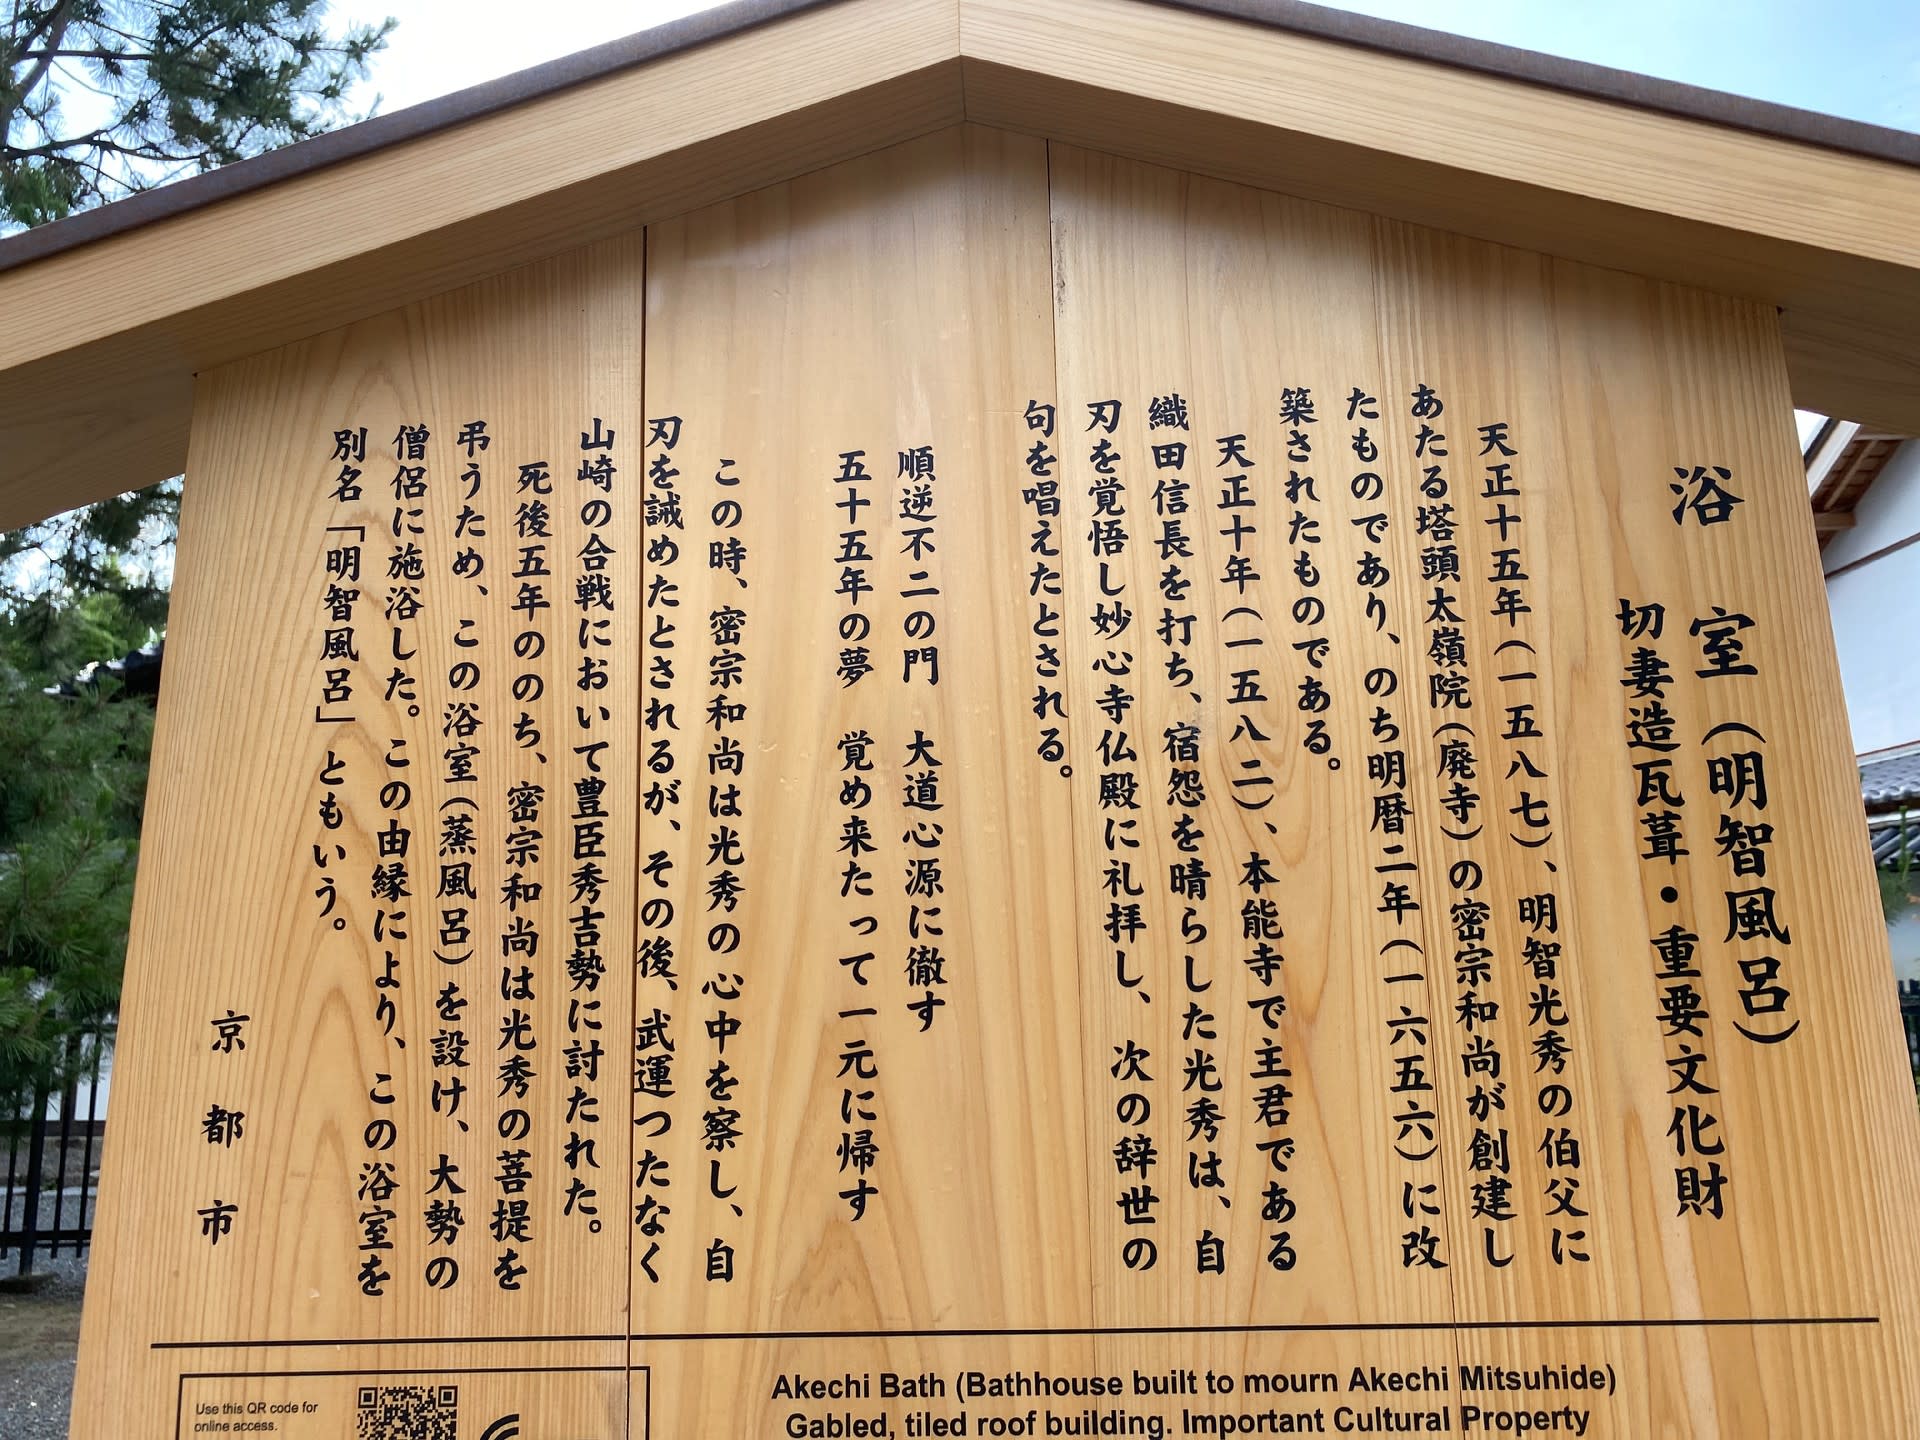 浴室(明智風呂)
切妻造瓦葺・重要文化財
天正十五年(一五八七)、明智光秀の伯父に
あたる塔頭太嶺院(廃寺)の密宗和尚が創建し
たものであり、のち明暦二年(一六五六)に改
築されたものである。
天正十年(一五八二)、本能寺で主君である
織田信長を打ち、宿怨を晴らした光秀は、自
刃を覚悟し妙心寺仏殿に礼拝し、次の辞世の
句を唱えたとされる。
順逆不二の門 大道心源に徹す
五十五年の夢 覚め来たって一元に帰す
この時、密宗和尚は光秀の心中を察し、自
刃を誡めたとされるが、その後、武運つたなく
山崎の合戦において豊臣秀吉勢に討たれた。
死後五年ののち、密宗和尚は光秀の菩提を
弔うため、この浴室(蒸風呂)を設け、大勢の
僧侶に施浴した。この由縁により、この浴室を
別名「明智風呂」ともいう。
京都市
Use this QR code for
online access.
Akechi Bath (Bathhouse built to mourn Akechi Mitsuhide)
Gabled, tiled roof building. Important Cultural Property